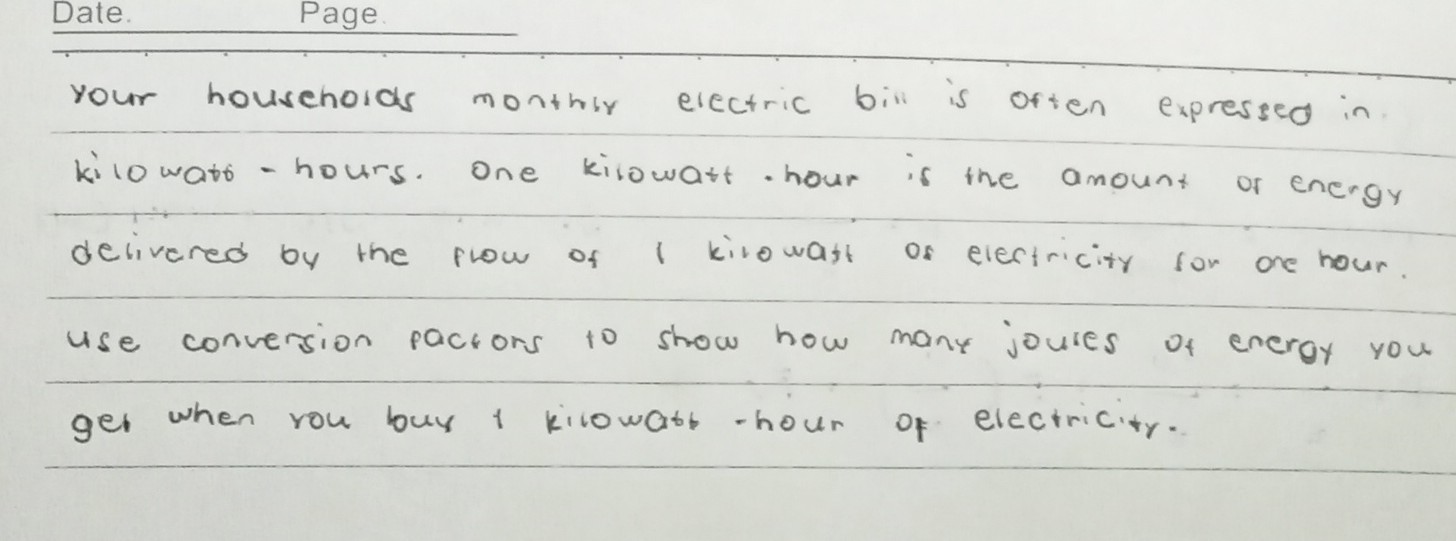 Date. Page.
Your households monthly electric bill is often expressed in
kilowatt - hours. One kilowatt - hour is the amount of energy
delivered by the flow of 1 kilowatt of electricity for one hour.
use conversion factors to show how many joules of energy you
get when you buy 1 kilowatt - hour of electricity.